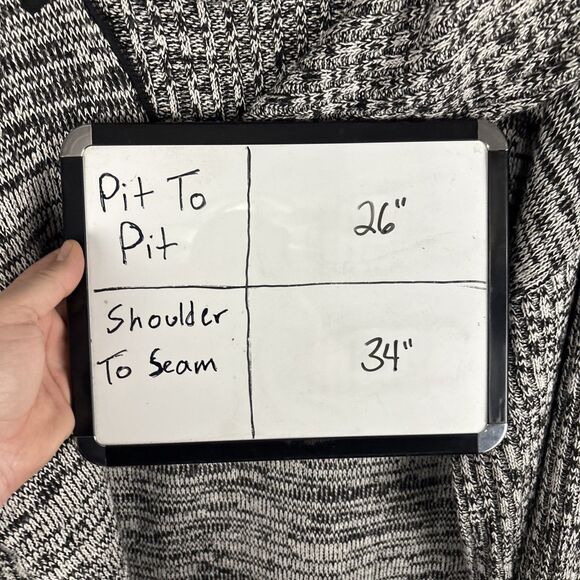 Pit To
Pit
26"
Shoulder
To Seam
34"